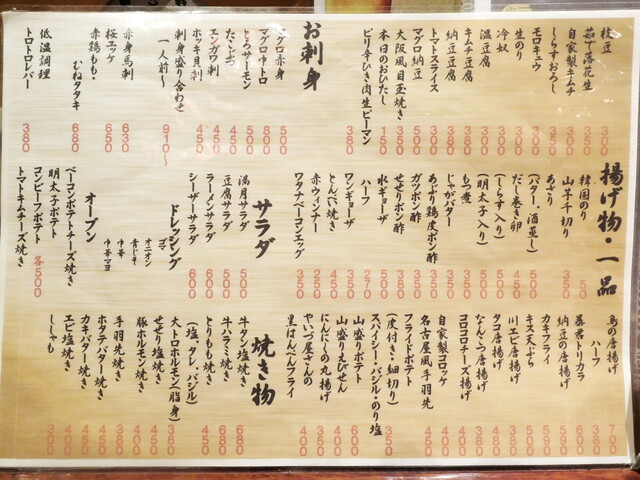 枝豆 300
茹で落花生 350
自家製キムチ 300
しらすおろし 300
モロキュウ 350
生のり
冷奴 300
温豆腐
キムチ豆腐
納豆豆腐
トマトスライス
マグロ納豆 500
大阪風目玉焼き 350
本日のおひたし 150
ピリ辛ひき肉生ピーマン 380
お刺身
マグロ赤身 500
マグロ中トロ 800
とろサーモン 500
たこぶつ 450
エンガワ刺 500
ホッキ貝刺 450
刺身盛り合わせ
一人前～ 910～
赤身馬刺 630
桜エッケ 680
赤鶏もも・
むねタタキ 680
低温調理
トロトロレバー 380
揚げ物・一品
韓国のり 50
山芋千切り 350
あさり
(バター、酒蒸し) 500
だし巻き卵 450
(しらす入り) 500
(明太子入り) 500
もつ煮
じゃがバター
あぶり鶏皮ポン酢 350
ガツポン酢
せせりポン酢 380
水ギョーザ 500
ハーフ 270
ワンギョーザ 350
とんぺい焼き 450
赤ウィンナー 250
ワタナベーコンエッグ 350
サラダ
満月サラダ 500
豆腐サラダ 500
ラーメンサラダ 600
シーザーサラダ 600
ドレッシング
ゴマ
オニオン
青じそ
中華
中華マヨ
オーブン
ベーコンポテトチーズ焼き
明太子ポテト
コンビーフポテト 各500
トマトキムチチーズ焼き
鳥の唐揚げ 700
ハーフ 380
暴君トリカラ
納豆の唐揚げ
カキフライ
キス天ぷら
川エビ唐揚げ
タコ唐揚げ
なんこつ唐揚げ
コロコロチーズ揚げ 400
自家製コロッケ
名古屋風手羽先 450
フライドポテト
(皮付き・細切り) 350
スパイシー・バジル・のり塩
山盛りポテト 600
山盛りえびせん
にんにくの丸揚げ 400
やいづ屋さんの
黒はんぺんフライ 300
焼き物
牛タン塩焼き 680
牛ハラミ焼き 680
とりもも焼き 450
(塩、タレ、バジル)
大トロホルモン(脂身) 380
せせり塩焼き 450
豚ホルモン焼き 400
手羽先焼き 380
ホタテバター焼き 450
カキバター焼き
エビ塩焼き 400
ししゃも 300